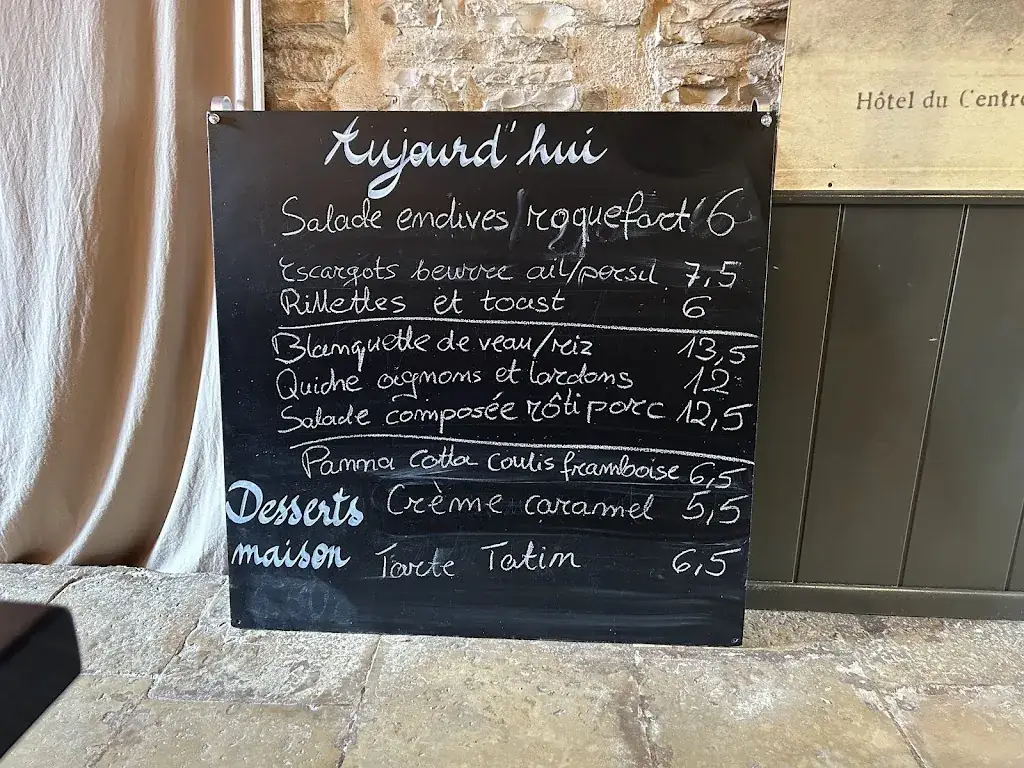 Hôtel du Centre
Aujourd'hui
Salade endives/roquefort 6
Escargots beurre ail/persil 7,5
Rillettes et toast 6
Blanquette de veau/riz 13,5
Quiche oignons et lardons 12
Salade composée rôti porc 12,5
Panna Cotta Coulis framboise 6,5
Desserts maison
Crème caramel 5,5
Tarte Tatin 6,5